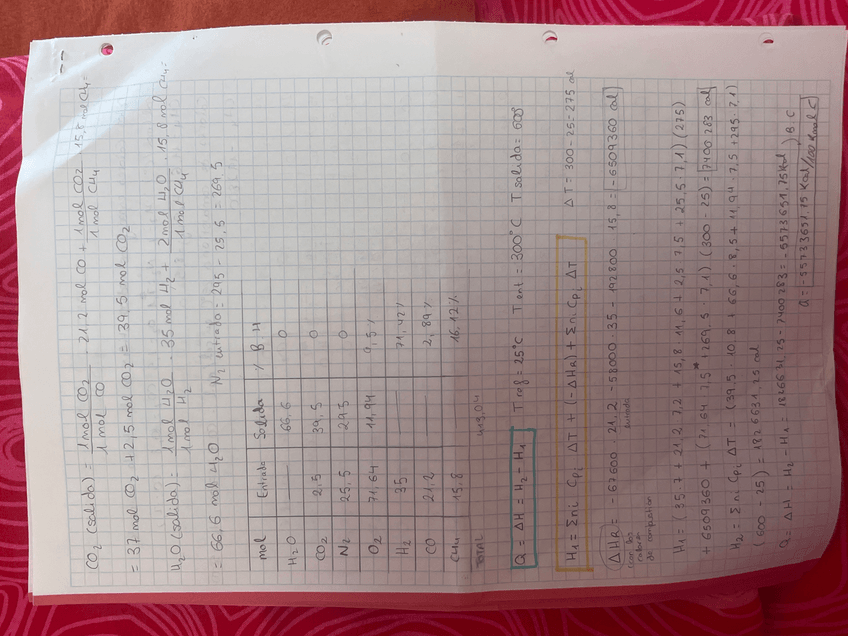 CO2 (salida) = 1 mol CO2 / 1 mol CO · 21,2 mol CO + 1 mol CO2 / 1 mol CH4 · 15,8 mol CH4 =
= 37 mol CO2 + 2,5 mol CO2 = 39,5 mol CO2
H2O (salida) = 1 mol H2O / 1 mol H2 · 35 mol H2 + 2 mol H2O / 1 mol CH4 · 15,8 mol CH4 =
= 66,6 mol H2O N2 entrada = 295 - 25,5 = 269,5
mol Entrada Salida % B.H
H2O — 66,6 0
CO2 2,5 39,5 0
N2 25,5 295 0
O2 71,64 11,94 9,5%
H2 35 — 71,42%
CO 21,2 2,89%
CH4 15,8 16,12%
TOTAL 419,04
Q = ΔH = H2 - H1 Tref = 25°C Tent = 300°C Tsalida = 600°
H1 = Σni Cpi ΔT + (-ΔHR) + Σni Cpi ΔT ΔT = 300 - 25 = 275 cal
ΔHR = -67600 · 21,2 - 58000 · 35 - 192800 · 15,8 = -6509360 cal
con los
calores
de combustion
entrada
H1 = (35·7 + 21,2·7,2 + 15,8·11,6 + 2,5·7,5 + 25,5·7,1) (275)
+ 6509360 + (71,64·7,5 + 269,5·7,1) (300 - 25) = 7400283 cal
H2 = Σni Cpi ΔT = (39,5·10,8 + 66,6·8,5 + 11,94·7,5 + 295·7,1)
(600 - 25) = 1826631,25 cal
Q = ΔH = H2 - H1 = 1826631,25 - 7400283 = -5573651,75 Kcal) B.C
Q = -55733657,75 Kcal/100 Kmol C